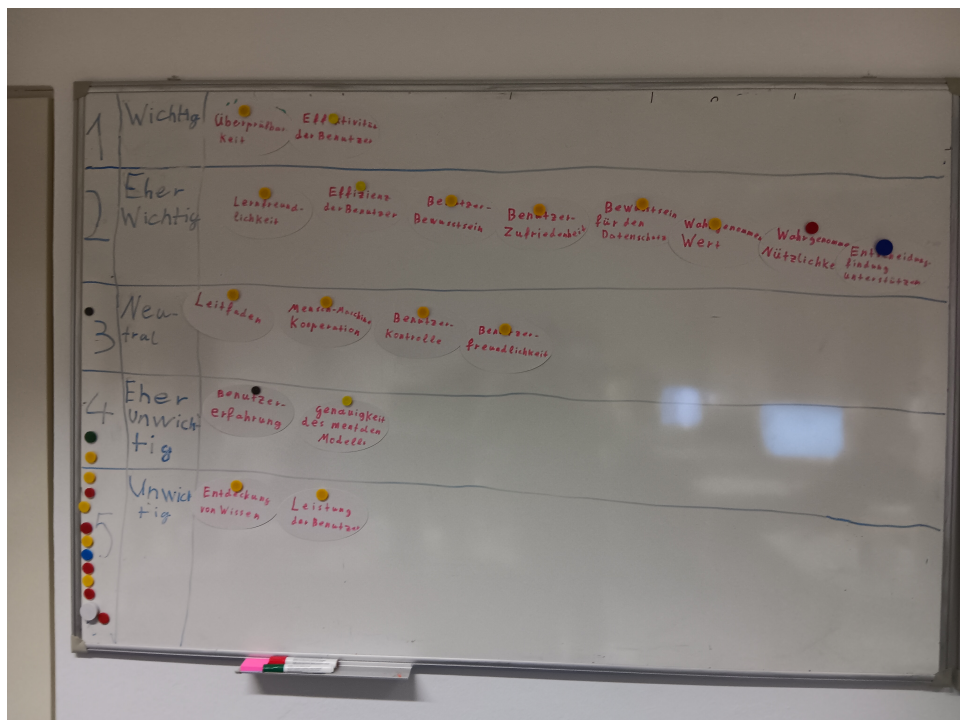 1
Wichtig
Überprüfbar
Keit
Effektivität
der Benutzer
2
Eher
Wichtig
Lernfreund-
lichkeit
Effizienz
der Benutzer
Benutzer-
Bewusstsein
Benutzer-
Zufriedenheit
Bewusstsein
für den
Datenschutz
Wahrgenommen
Wert
Wahrgenomme
Nützlichke
Entscheidung
findung
unterstützen
3
Neu-
tral
Leitfaden
Mensch-Maschine
Kooperation
Benutzer-
Kontrolle
Benutzer-
freundlichkeit
4
Eher
unwich
tig
Benutzer-
erfahrung
genauigkeit
des mentalen
Modells
5
Unwich
tig
Entdeckung
von Wissen
Leistung
der Benutzer